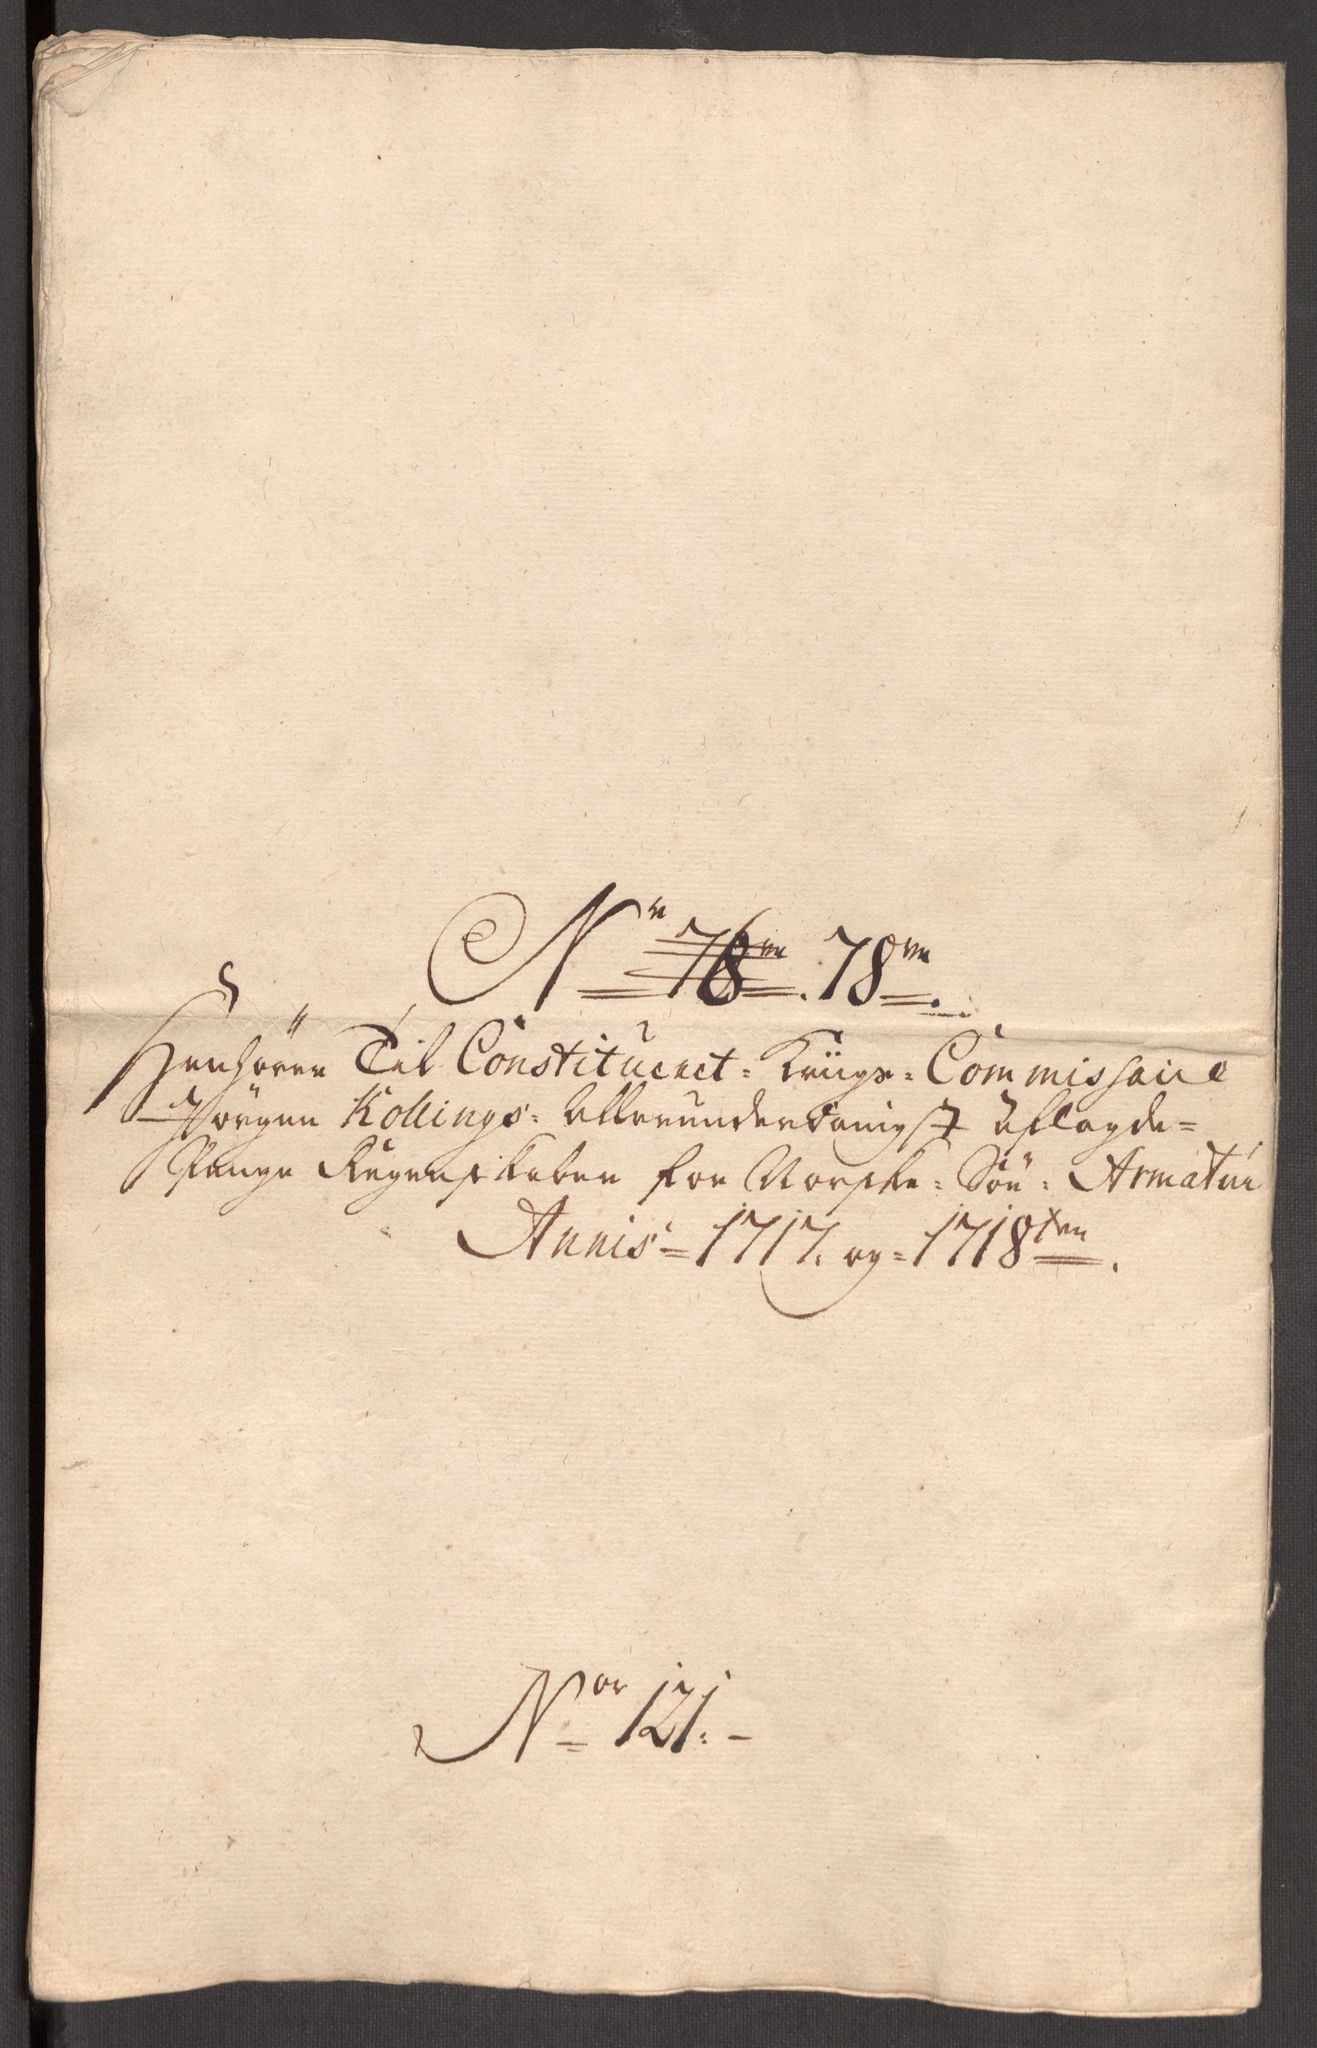 Nr 78de. 78de.
Henhörer Til Constitueret = Kriigs = Commissaire
Jörgen Kollings = Allerunderdanigst aflagde =
Penge Regenskaber for Norske = Söe = Armatur
Annis = 1717. og = 1718ten.
Nor 121. -